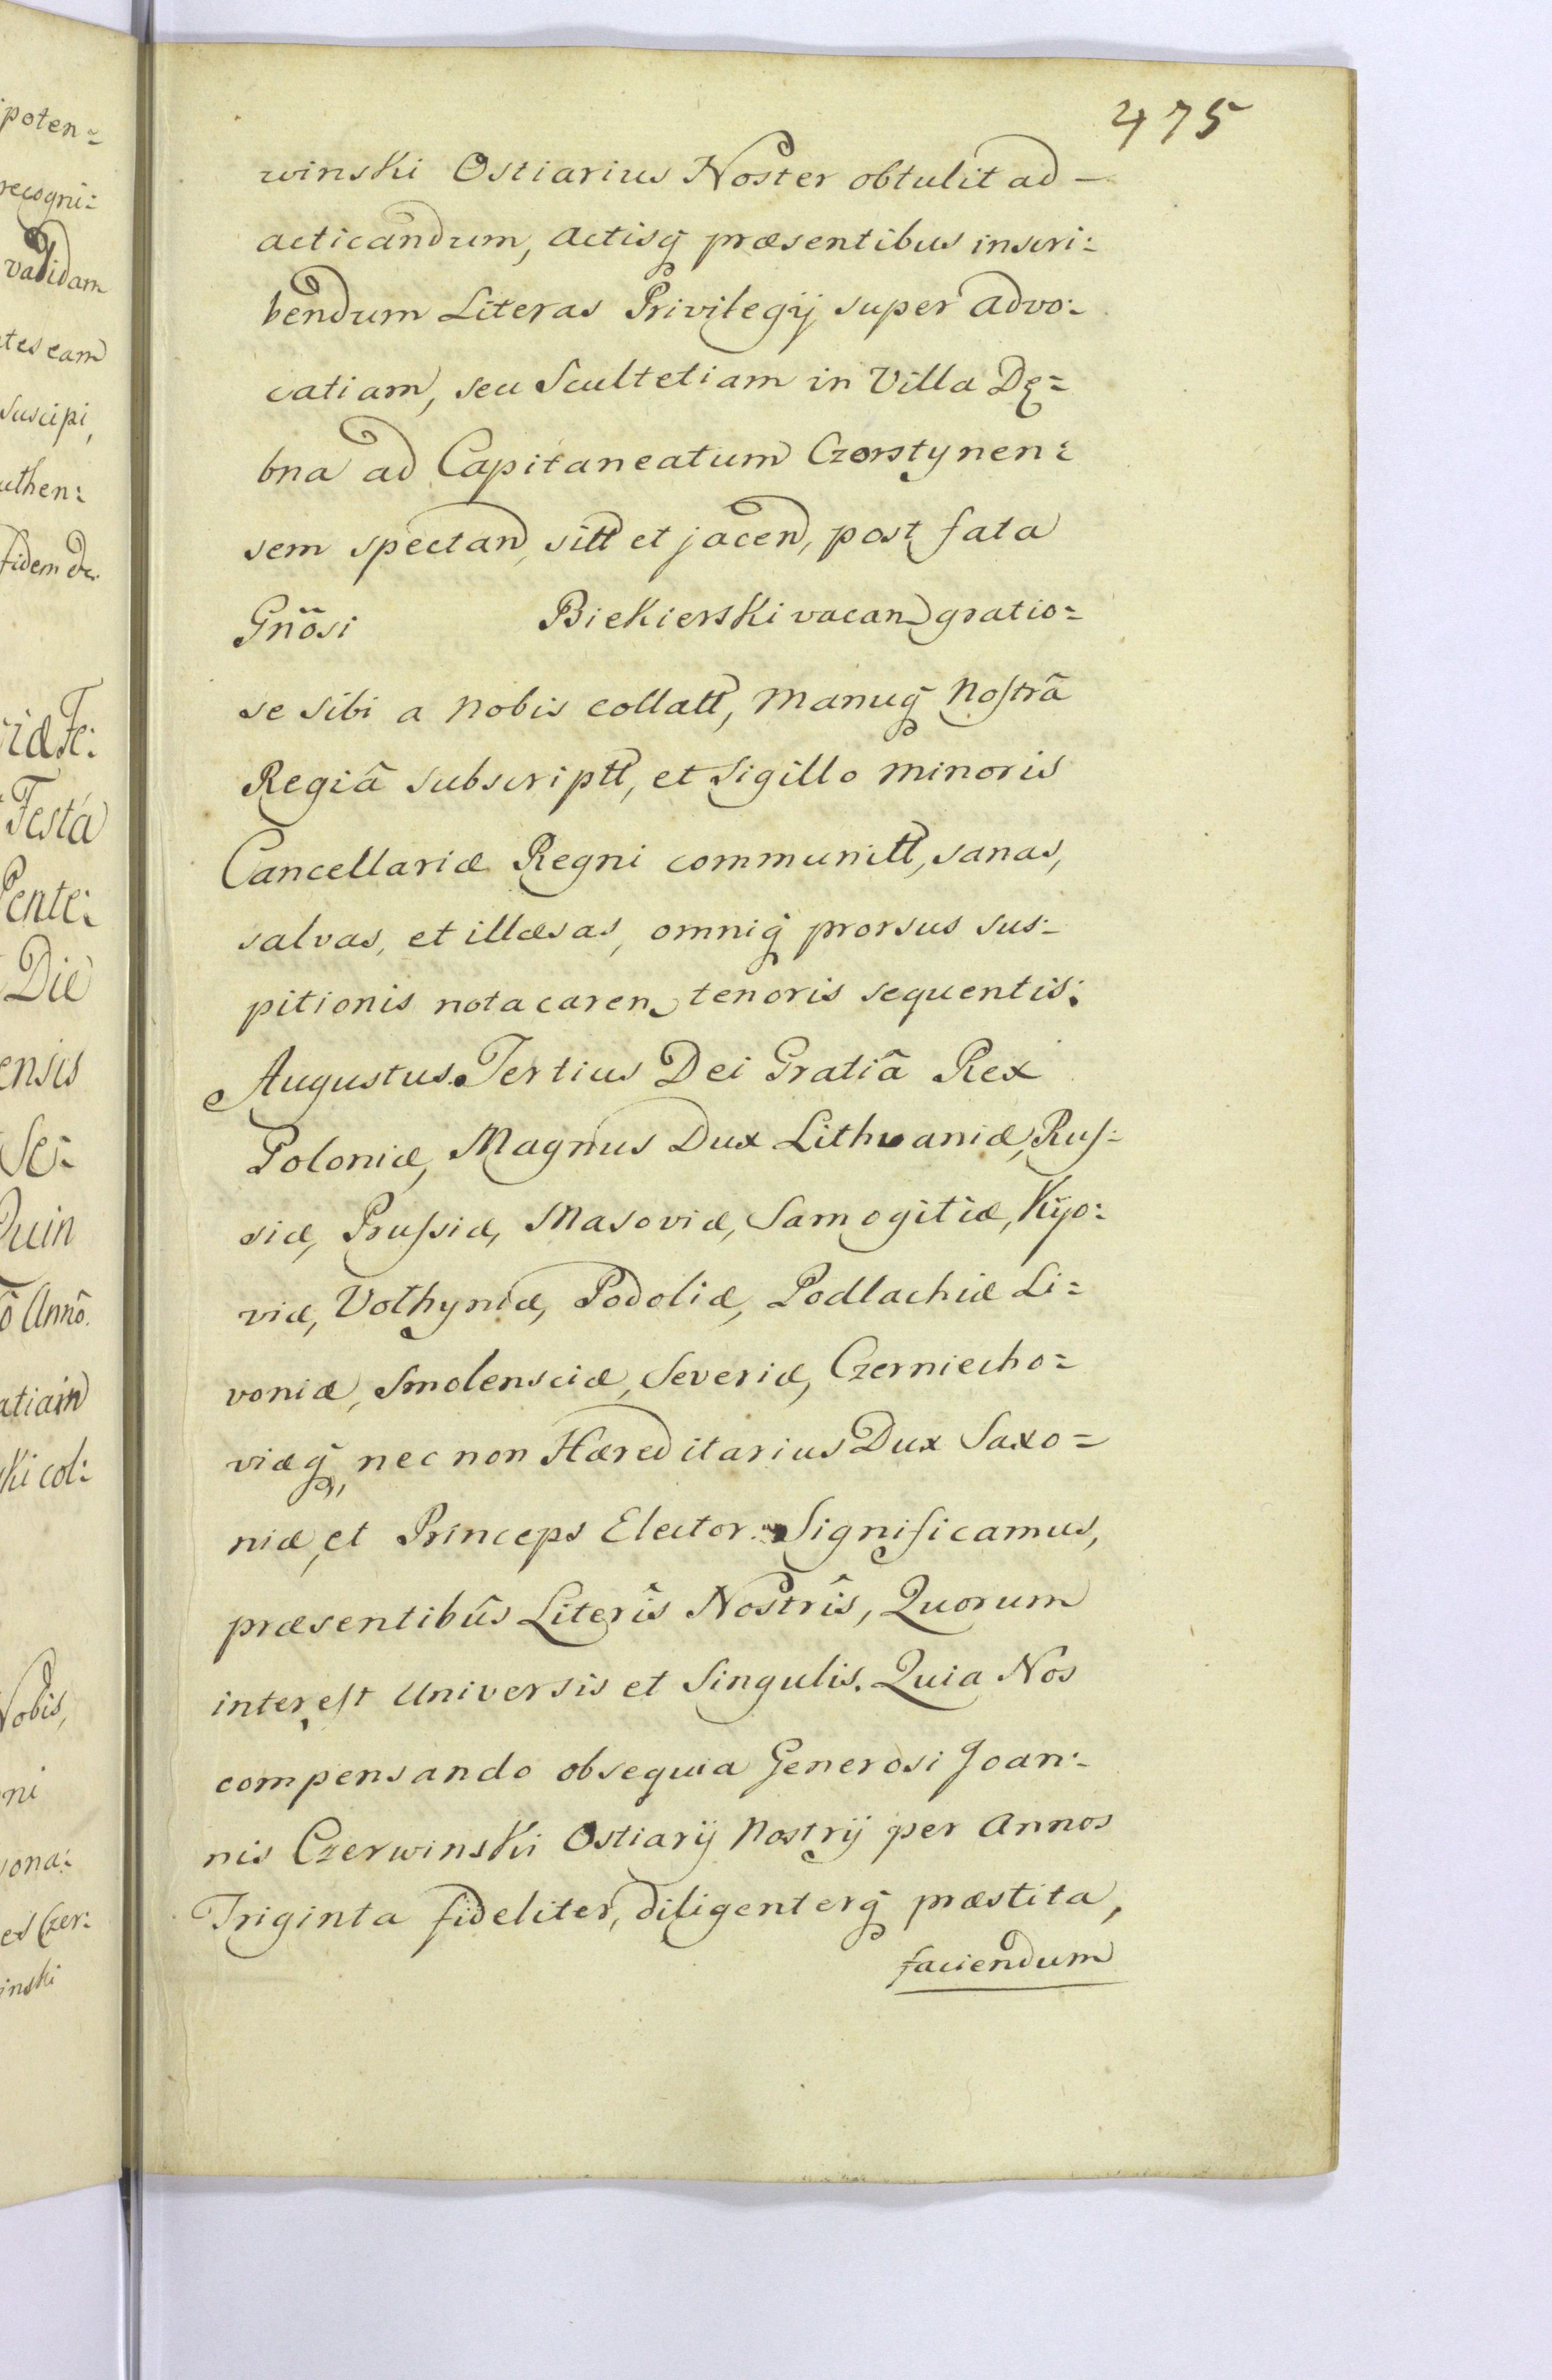 475
winski Ostiarius Noster obtulit ad-
acticandum, Actisq̃ præsentibus inscri:
bendum Literas Privilegij super Advo:
catiam, seu Scultetiam in Villa Dę=
bna ad Capitaneatum Czorstynen:
sem spectan, sitt et jacen, post fata
Gñõsi Biekierski vacan gratio=
se sibi a Nobis collatt, Manuq̃ Nostrâ
Regiâ subscriptt, et Sigillo Minoris
Cancellariæ Regni communitt, sanas,
salvas, et illæsas, omniq̃ prorsus sus:
pitionis nota caren tenoris sequentis:
Augustus Tertius Dei Gratiâ Rex
Poloniæ, Magnus Dux Lithvaniæ, Rus:
siæ, Prussiæ, Masoviæ, Samogitiæ, Kijo:
viæ, Volhyniæ, Podoliæ, Podlachiæ Li=
voniæ, Smolensciæ, Severiæ, Czerniecho=
viæq̃, nec non Hæreditarius Dux Saxo=
niæ, et Princeps Elector. Significamus,
præsentibûs Literîs Nostrîs, Quorum
interest Universis et Singulis. Quia Nos
compensando obsequia Generosi Joan:
nis Czerwinski Ostiarij Nostrij per Annos
Triginta fideliter, diligenterq̃ præstita,
faciendum
poten=
recogni:
validam
tes eam
suscipi,
uthen:
fidem
Testa
Pente:
Die
ensis
Se:
Quin
Annô.
atiam
ki col:
Nobis,
ni
sona:
es Czer:
inski